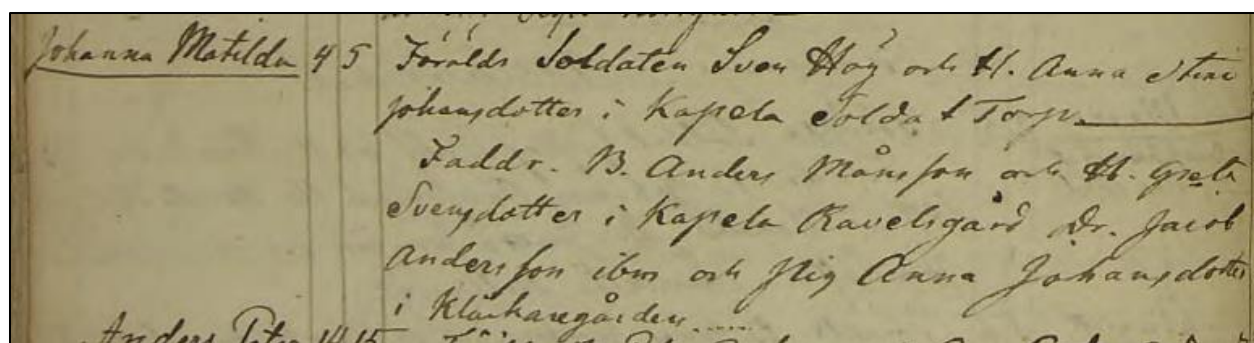 Johanna Matilda 4 5 Föralds Soldaten Sven Höy och H. Anna Stina
Johansdotter i Kapela Soldat Torp.
Faddr. B. Anders Månsson och H. Greta
Svensdotter i Kapela Ravelsgård Dr. Jacob
Andersson ibm och Pig Anna Johansdotter
i Klåckaregården
Anders Peter 14 15